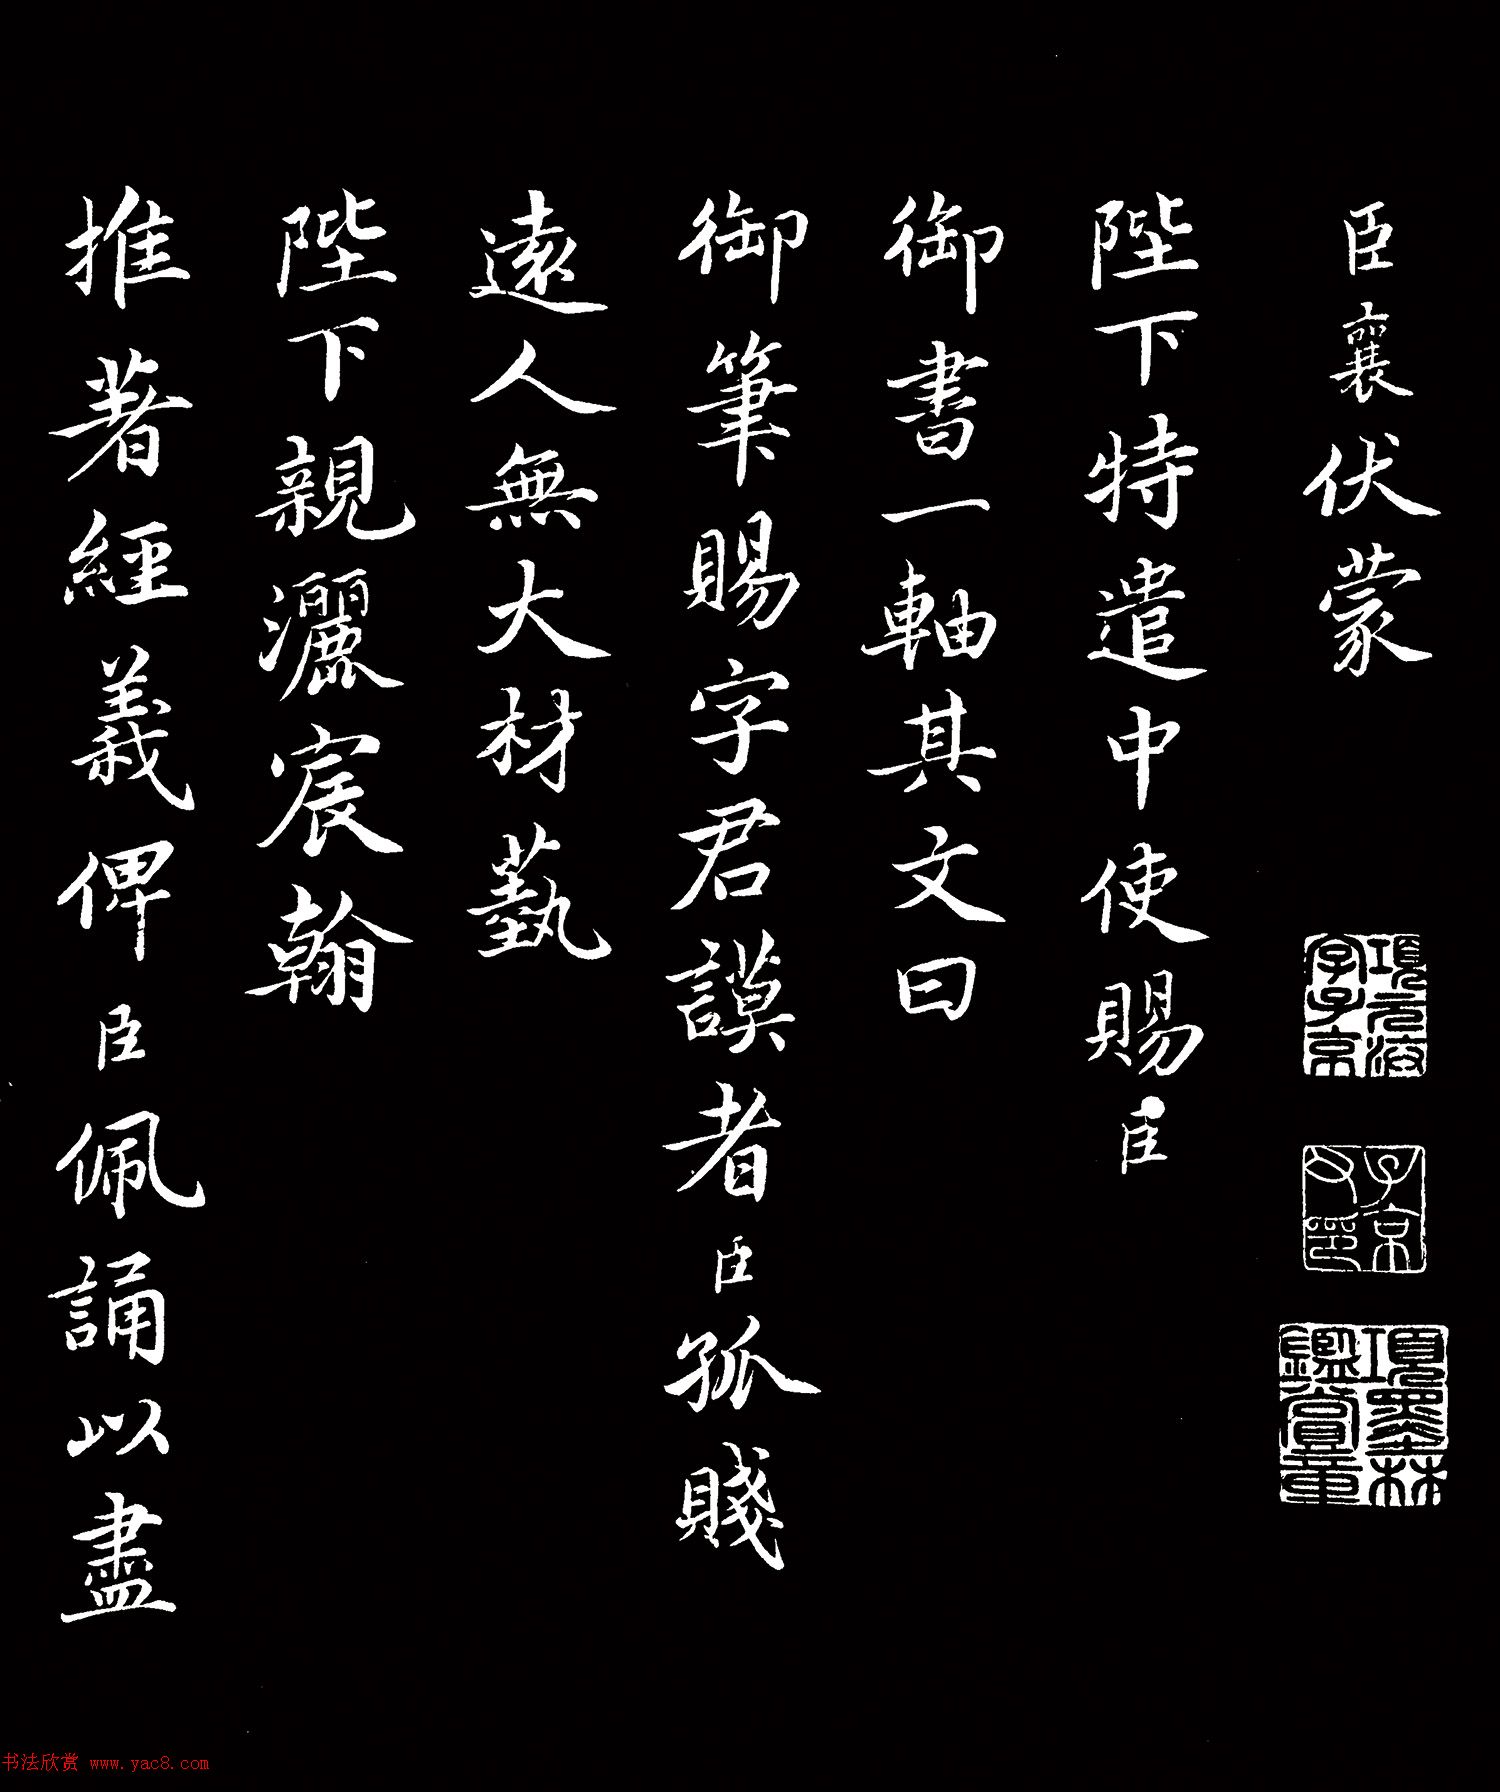 臣襄伏蒙
陛下特遣中使賜臣
御書一軸其文曰
御筆賜字君謨者臣孤賤
遠人無大材藝
陛下親灑宸翰
推著經義俾臣佩誦以盡
項元汴字子京
子京父印
項墨林鑑賞章
书法欣赏 www.yac8.com